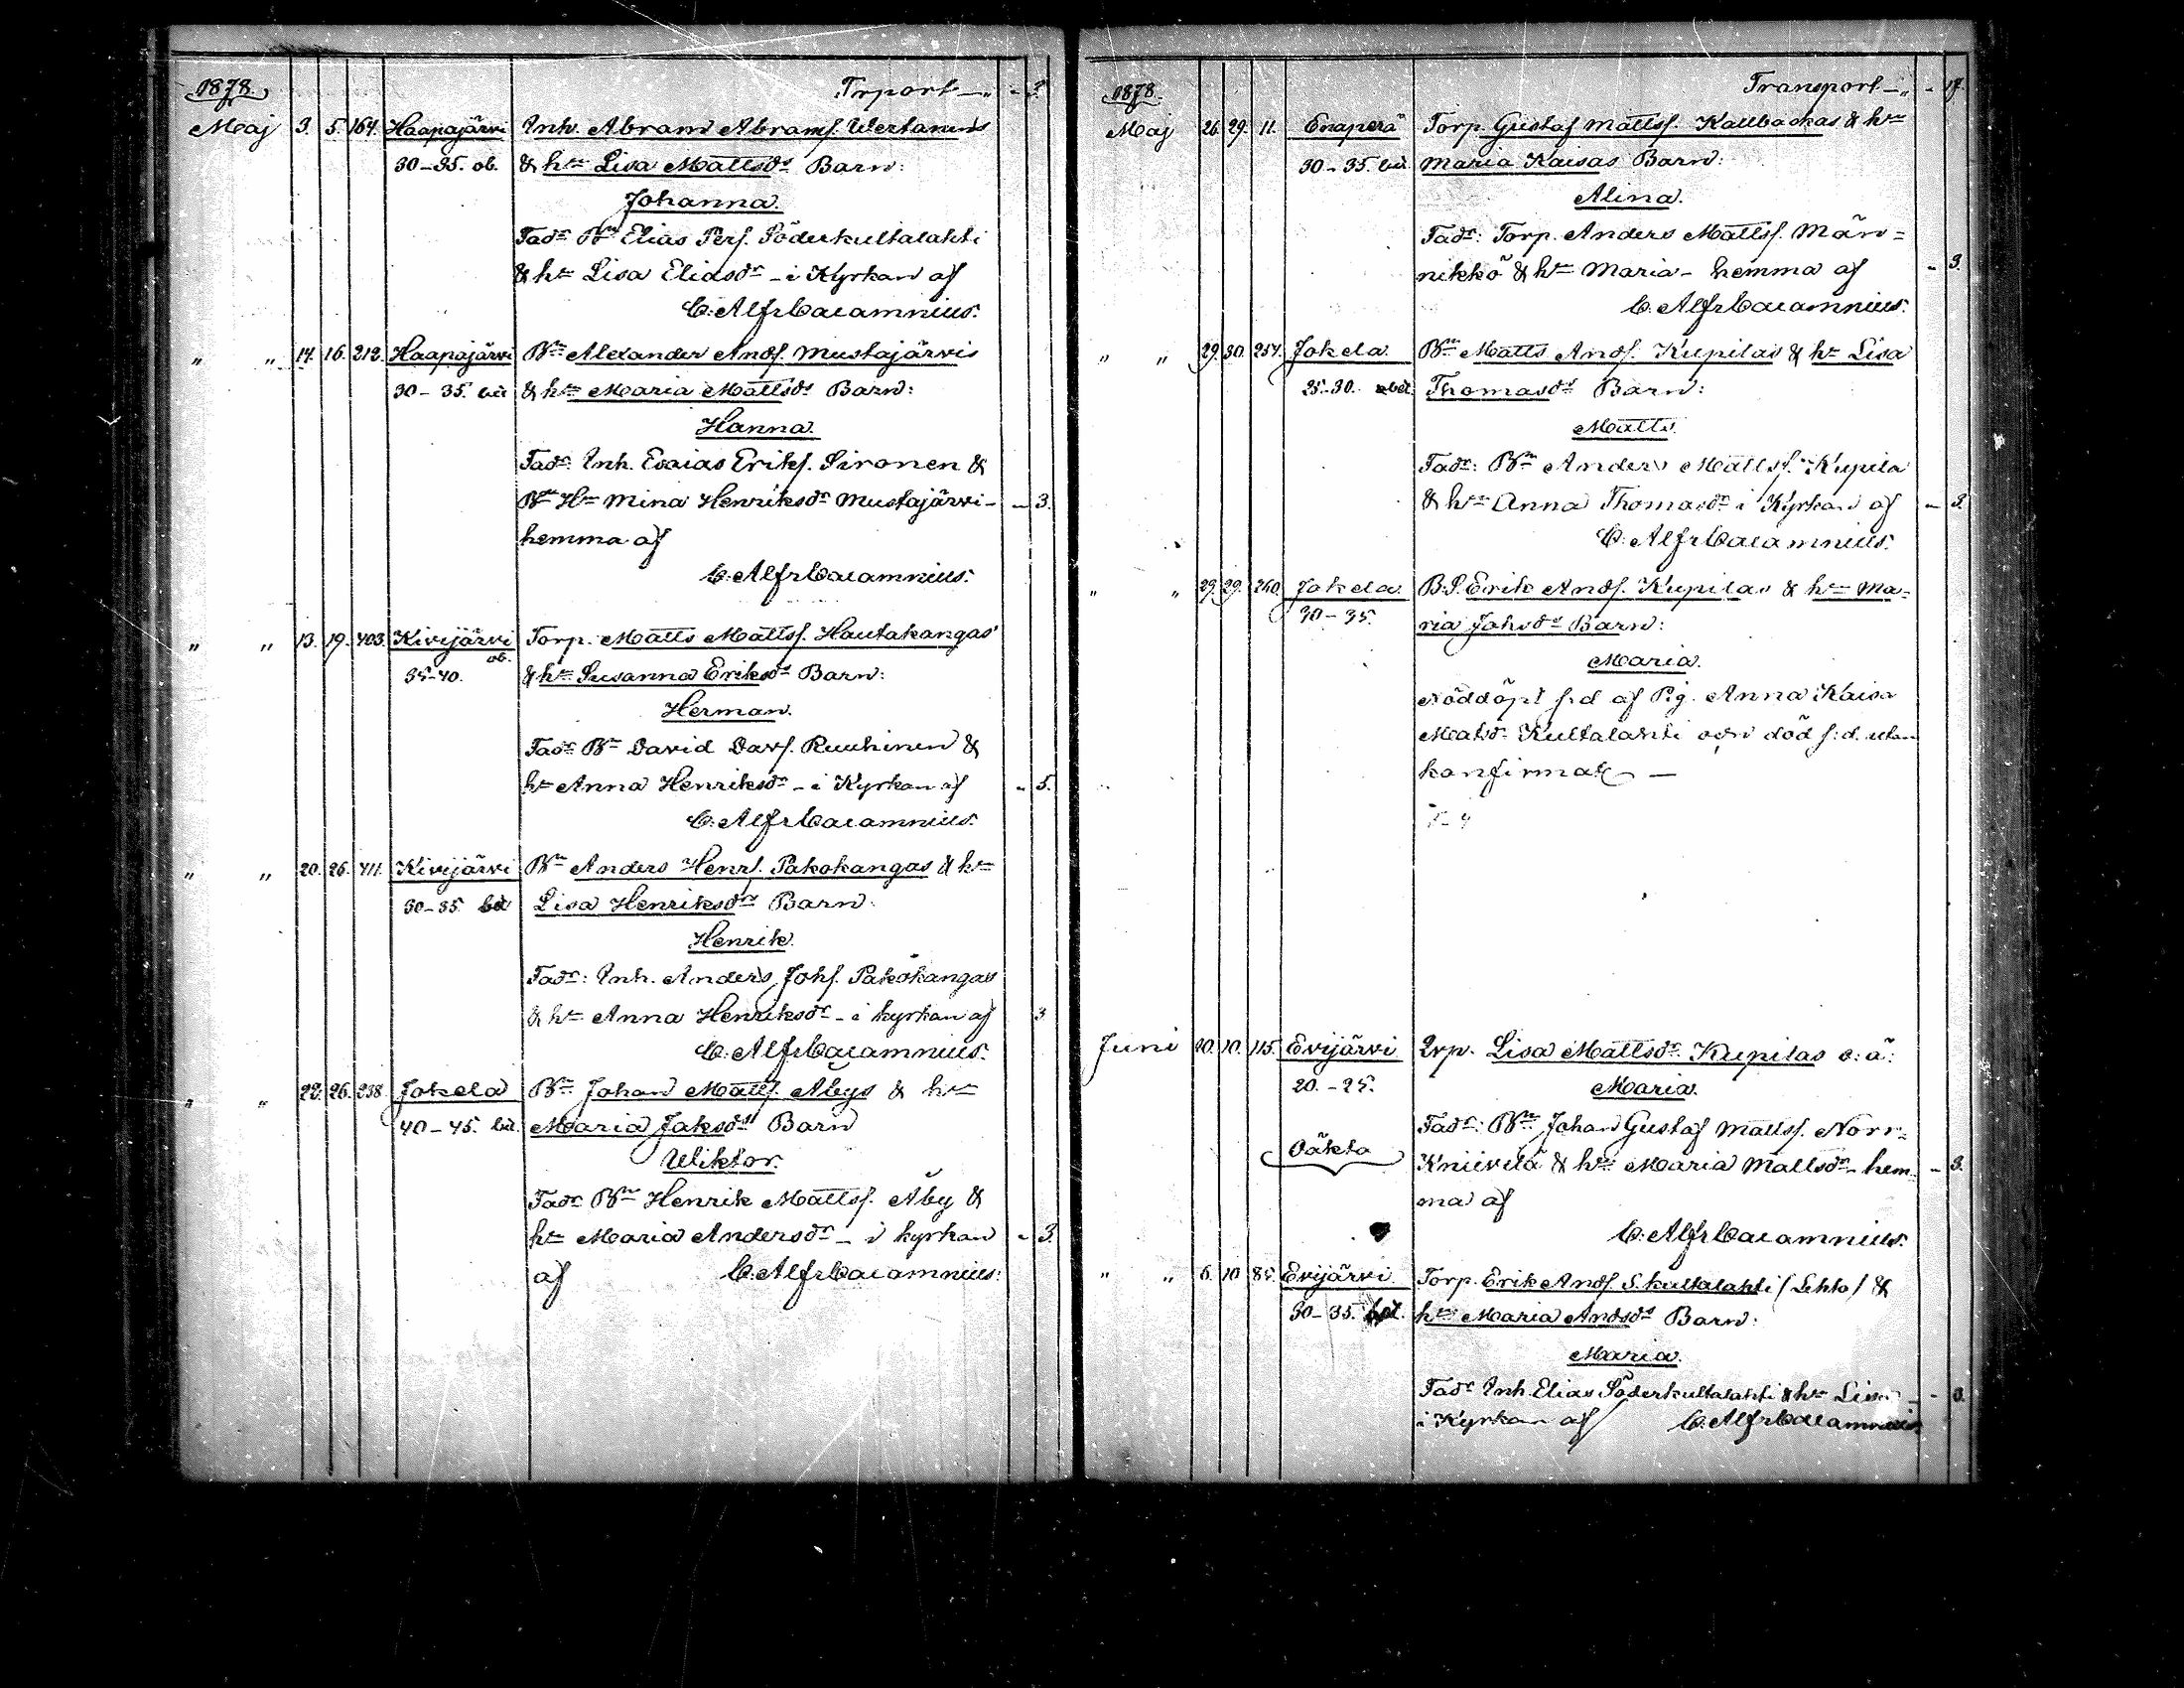 1878. Trport — " - 3.
Maj 3. 5. 164. Haapajärvi Inh. Abram Abramss. Wertanens
30–35. ob. & hu Lisa Mattsdr Barn:
Johanna.
Fadr Bn Elias Pers. Söderkultalahti
& hu Lisa Eliasdr – i Kyrkan af
C. Alfr Cajamnius.
" " 14. 16. 212. Haapajärvi Bn Alexander Ands. Mustajärvis
30–35. & hu Maria Mattsdr Barn:
Hanna.
Fadr: Inh. Esaias Eriks. Sironen &
Bn Hu Mina Henriksdr Mustajärvi – - 3.
hemma af
C. Alfr Cajamnius.
" " 13. 19. 403. Kivijärvi Torp. Matts Mattss. Hautakangas
35–40. ob. & hu Susanna Eriksdr Barn:
Herman.
Fadr Bn David Davs. Ruuhinen &
hu Anna Henriksdr – i Kyrkan af - 5.
C. Alfr Cajamnius.
" " 20. 26. 411. Kivijärvi Bn Anders Henrs. Pakokangas & hu
30–35. Lisa Henriksdr Barn:
Henrik.
Fadr: Inh. Anders Johs. Pakokangas
& hu Anna Henriksdr – i kyrkan af 3
C. Alfr Cajamnius.
" " 22. 26. 238. Jokela Bn Johan Matts. Åbys & hu
40–45. Maria Jaksdr Barn
Wiktor.
Fadr Bn Henrik Mattss. Åby &
hu Maria Andersdr – i kyrkan - 3.
af C. Alfr Cajamnius.
1878. Transport — " - 17.
Maj 26. 29. 11. Enaperä Torp. Gustaf Mattss. Kallbackas & hu
30–35. Maria Kaisas Barn:
Alina.
Fadr: Torp. Anders Mattss. Män=
nikkö & hu Maria – hemma af - 3.
C. Alfr Cajamnius.
" " 29. 30. 257. Jokela Bn Matts Ands. Kupilas & hu Lisa
25–30. Thomasdr Barn:
Matts.
Fadr: Bn Anders Mattss. Kupila
& hu Anna Thomasdr i Kyrkan af - 3.
C. Alfr Cajamnius.
" " 29. 29. 260. Jokela. B.S. Erik Ands. Kupilas & hu Ma=
30–35. ria Johsdr Barn:
Maria.
Nöddöpt s.d af Pig. Anna Kaisa
Matsdr Kultalahti och död s.d. utan
konfirmat. —
Juni 10. 10. 115. Evijärvi Qvp. Lisa Mattsdr Kupilas o: ä:
20.–25. Maria.
Fadr: Bn Johan Gustaf Mattss. Norr=
Oäkta Kniivilä & hu Maria Mattsdr – hem= - 3.
ma af
C. Alfr Cajamnius.
" " 6. 10 85. Evijärvi Torp. Erik Ands. S. kultalahti (Lehto) &
30–35. hu Maria Andsdr Barn:
Maria.
Fadr Inh. Elias Söderkultalahti & hu Lisa – - 3.
i Kyrkan af C. Alfr Cajamnius